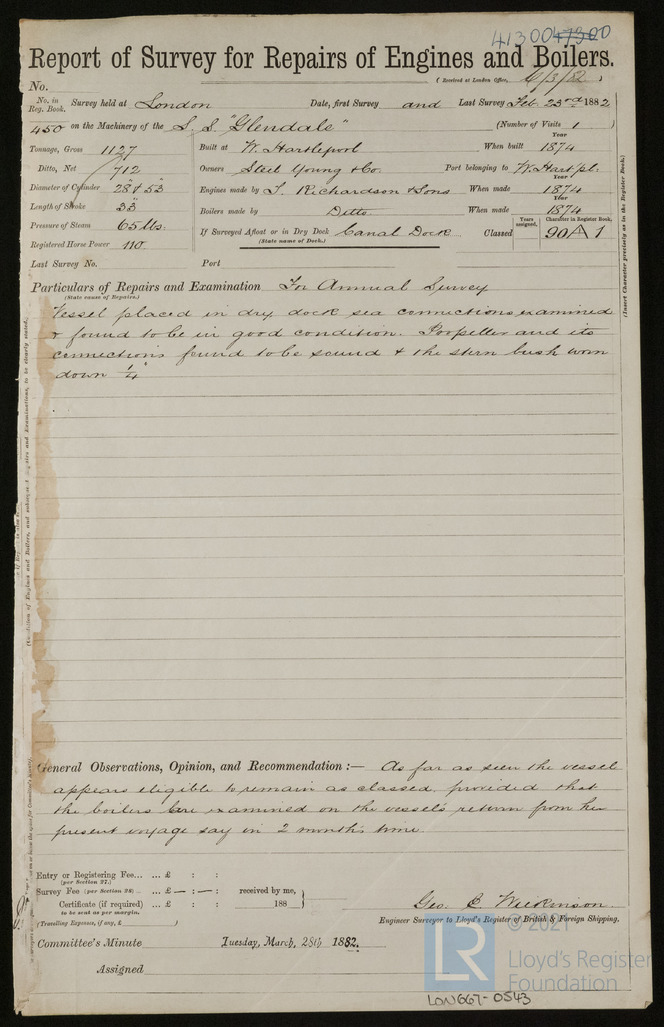 41300 47300
Report of Survey for Repairs of Engines and Boilers.
(Received at London Office, 6/3/82)
No.
No. in Reg. Book. Survey held at London Date, first Survey and Last Survey Feb. 23rd 1882
450 on the Machinery of the S.S. "Glendale" (Number of Visits 1)
Tonnage, Gross 1127 Built at W. Hartlepool When built Year 1874
Ditto, Net 712 Owners Steel Young & Co. Port belonging to W. Hartpl.
Diameter of Cylinder 28" & 53" Engines made by T. Richardson & Sons When made Year 1874
Length of Stroke 33" Boilers made by Ditto When made Year 1874
Pressure of Steam 65 lbs. If Surveyed Afloat or in Dry Dock Canal Dock Classed Years assigned, Character in Register Book, 90 A 1
(State name of Dock.)
Registered Horse Power 110
Last Survey No. Port
(Insert Character precisely as in the Register Book.)
Particulars of Repairs and Examination For Annual Survey
(State cause of Repairs.)
Vessel placed in dry dock sea connections examined
& found to be in good condition. Propeller and its
connections found to be sound & the stern bush worn
down 1/4"
General Observations, Opinion, and Recommendation :— As far as seen the vessel
appears eligible to remain as classed, provided that
the boilers are examined on the vessel's return from her
present voyage say in 2 month's time.
Entry or Registering Fee... ... £ : :
(per Section 27.)
Survey Fee (per Section 28) .. ... £ — : — : received by me,
Certificate (if required) ... £ : : 188
to be sent as per margin.
(Travelling Expenses, if any, £ )
Geo. C. Wilkinson
Engineer Surveyor to Lloyd's Register of British & Foreign Shipping.
Committee's Minute Tuesday, March, 28th 1882.
Assigned
© 2021
LR
Lloyd's Register
Foundation
LON667-0543